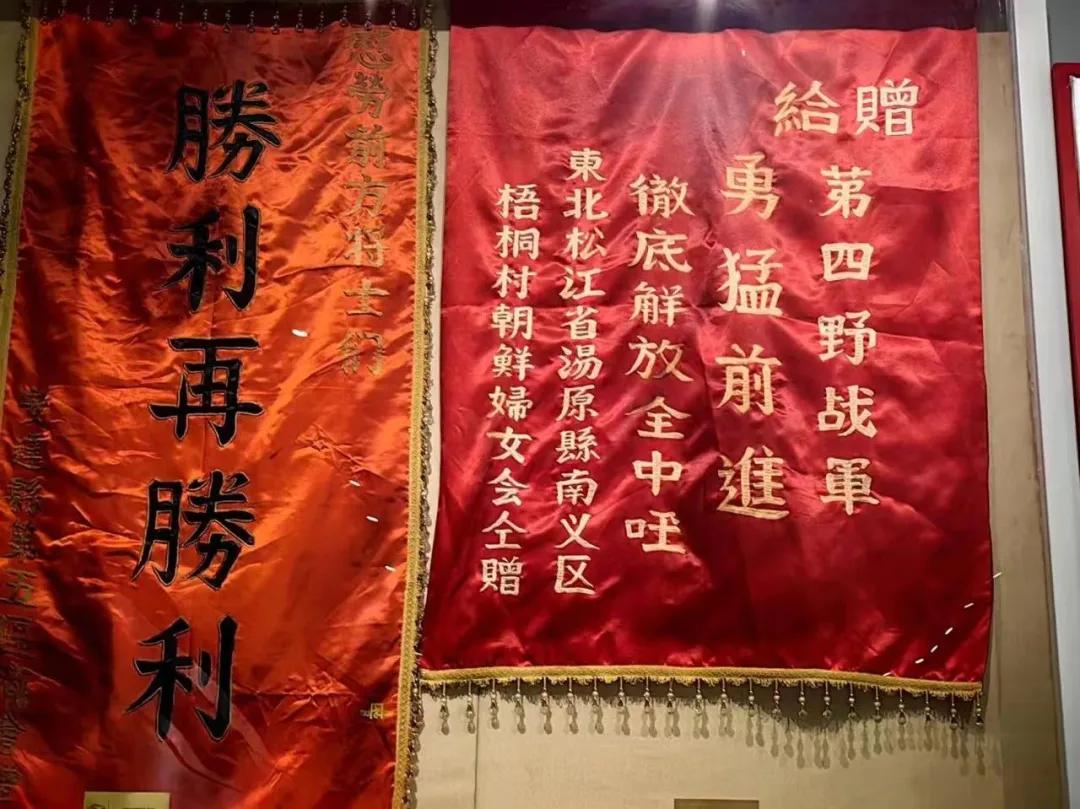 贈給
第四野战軍
勇猛前進
徹底解放全中囯
東北松江省湯原縣南义区
梧桐村朝鮮婦女会仝贈
慰勞前方将士们
勝利再勝利
縣第五